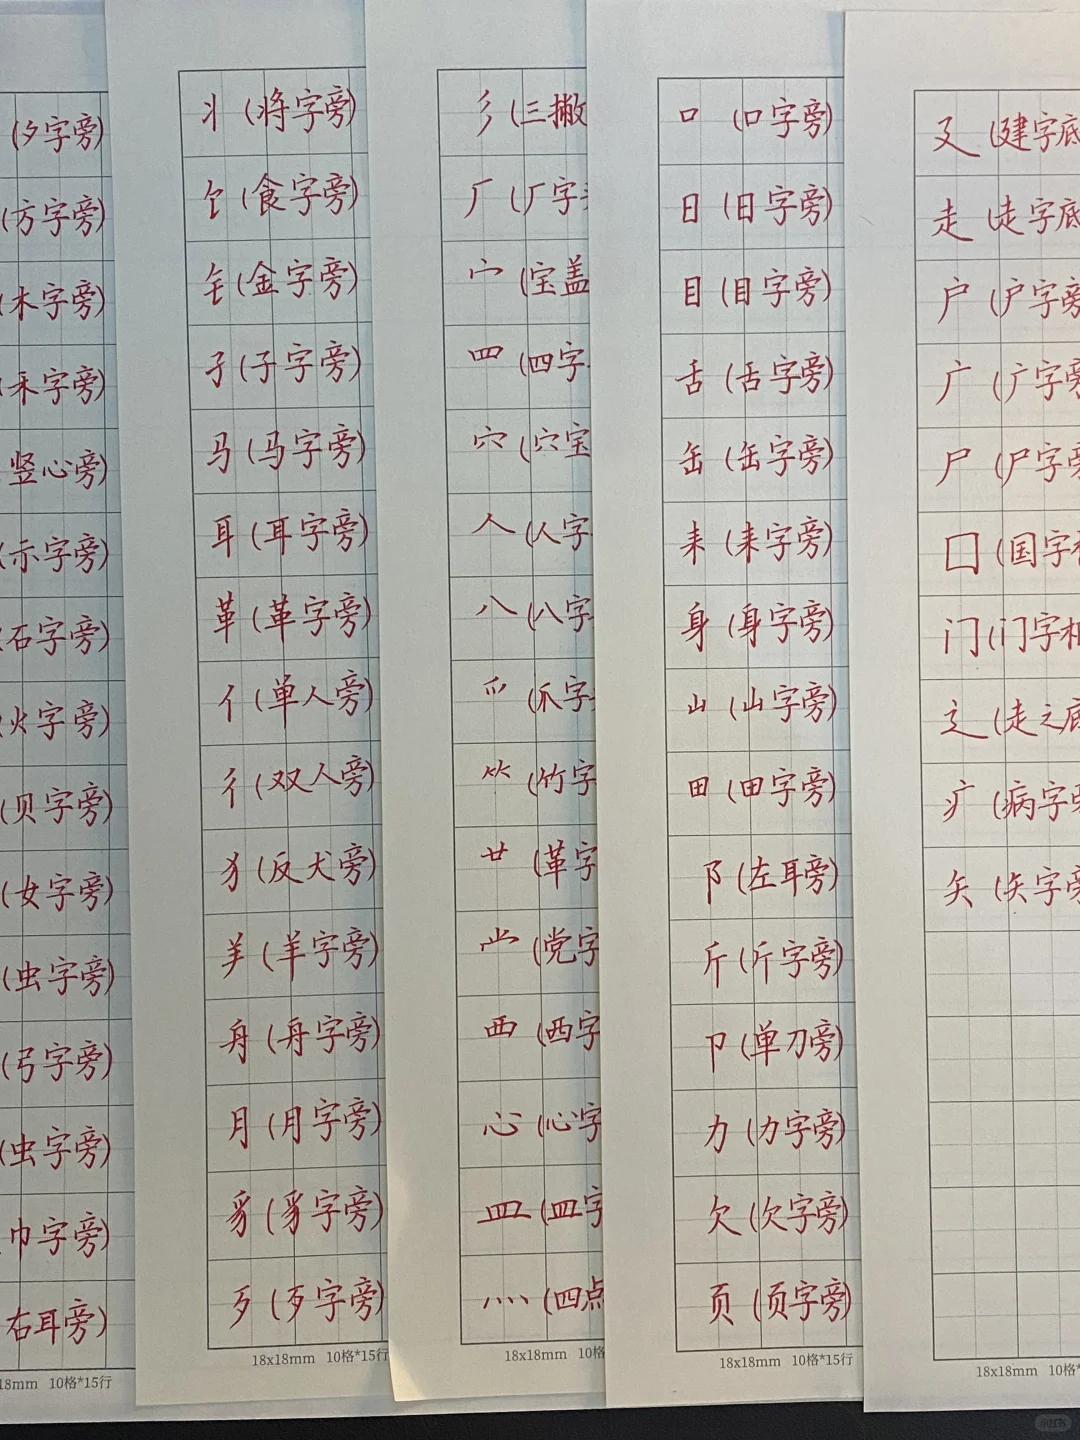 (夕字旁)
(方字旁)
(木字旁)
(禾字旁)
竖心旁)
(示字旁)
(石字旁)
(火字旁)
(贝字旁)
(女字旁)
(虫字旁)
(弓字旁)
(虫字旁)
巾字旁)
右耳旁)
18mm 10格*15行
丬 (将字旁)
饣 (食字旁)
钅 (金字旁)
孑 (子字旁)
马 (马字旁)
耳 (耳字旁)
革 (革字旁)
亻 (单人旁)
彳 (双人旁)
犭 (反犬旁)
羊 (羊字旁)
舟 (舟字旁)
月 (月字旁)
豸 (豸字旁)
歹 (歹字旁)
18x18mm 10格*15行
彡 (三撇
厂 (厂字
宀 (宝盖
罒 (四字
穴 (穴宝
人 (人字
八 (八字
爫 (爪字
⺮ (竹字
廿 (革字
龸 (党字
西 (西字
心 (心字
皿 (皿字
灬 (四点
18x18mm 10格
口 (口字旁)
日 (日字旁)
目 (目字旁)
舌 (舌字旁)
缶 (缶字旁)
耒 (耒字旁)
身 (身字旁)
山 (山字旁)
田 (田字旁)
阝 (左耳旁)
斤 (斤字旁)
卩 (单刀旁)
力 (力字旁)
欠 (欠字旁)
页 (页字旁)
18x18mm 10格*15行
廴 (建字底
走 (走字底
户 (户字旁
广 (广字旁
尸 (尸字旁
囗 (国字
门 (门字
辶 (走之底
疒 (病字旁
矢 (矢字旁
18x18mm 10格*
小红书